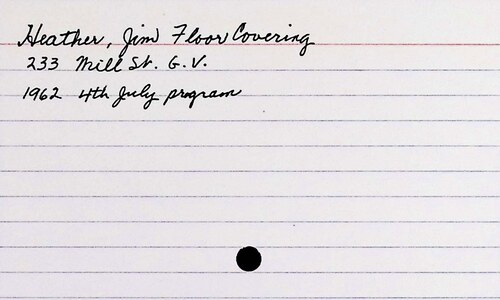 Heather, Jim Floor Covering
233 Mill St. G.V.
1962 4th July program